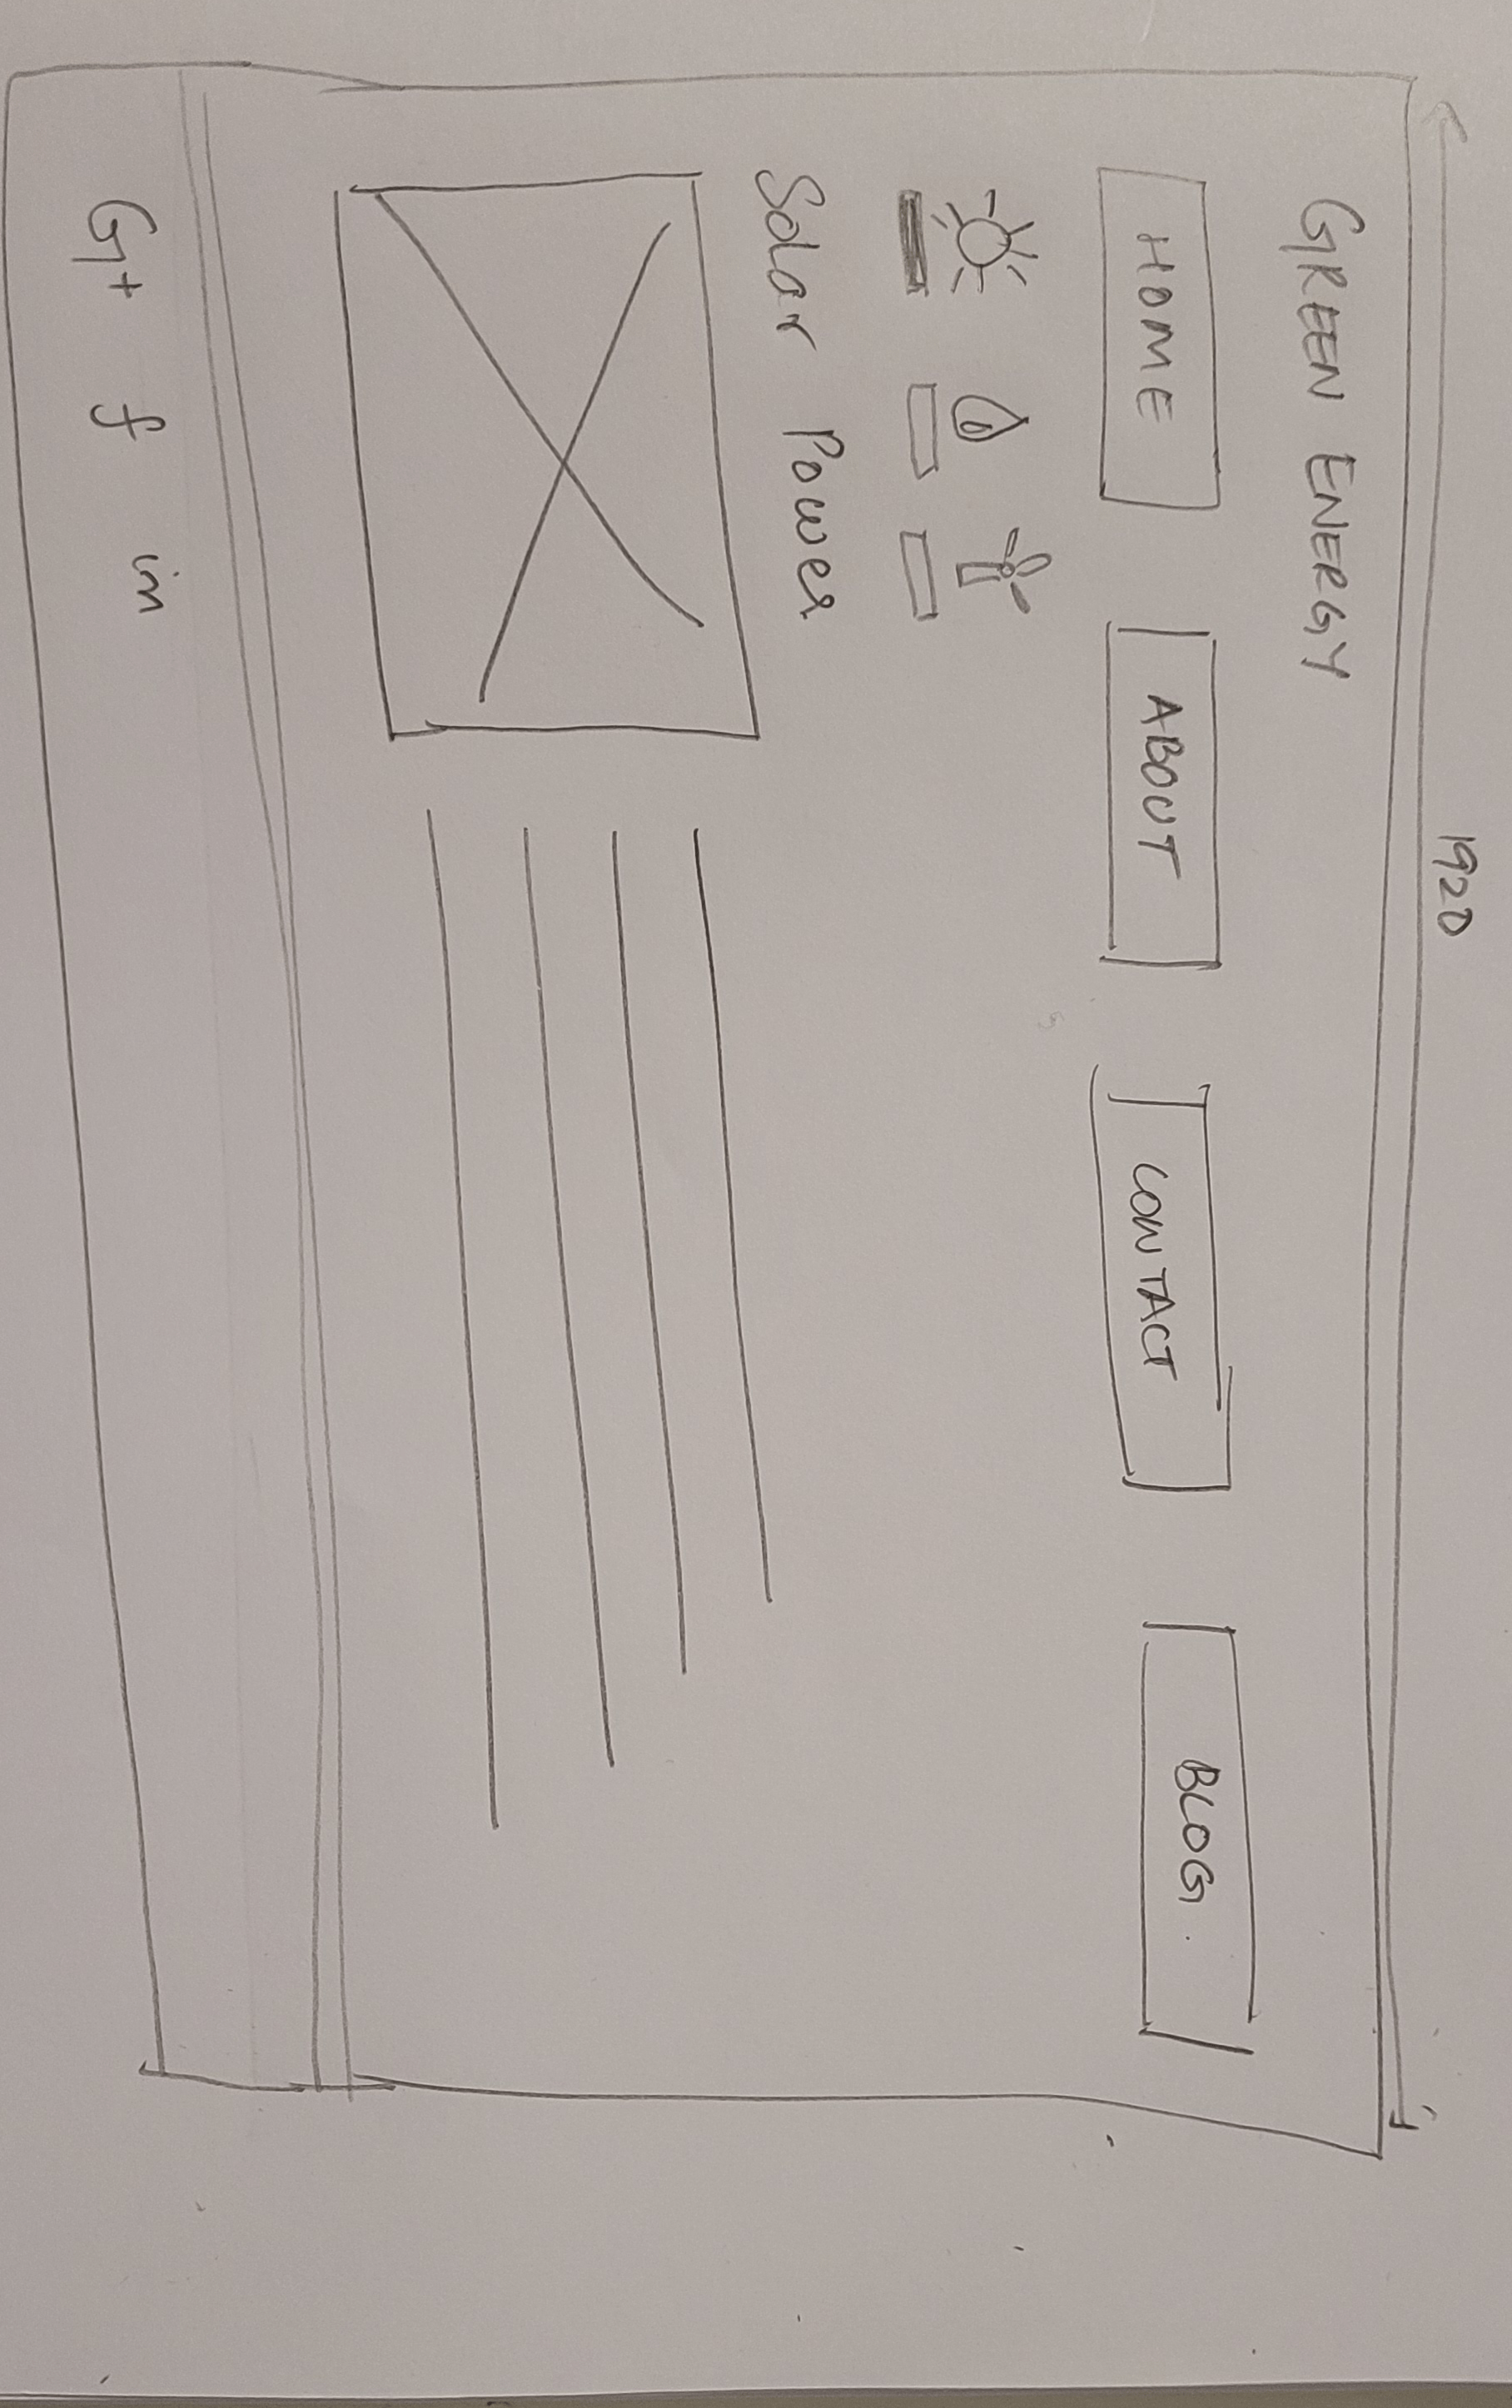 1920
GREEN ENERGY
HOME ABOUT CONTACT BLOG.
Solar Power
G+ f in